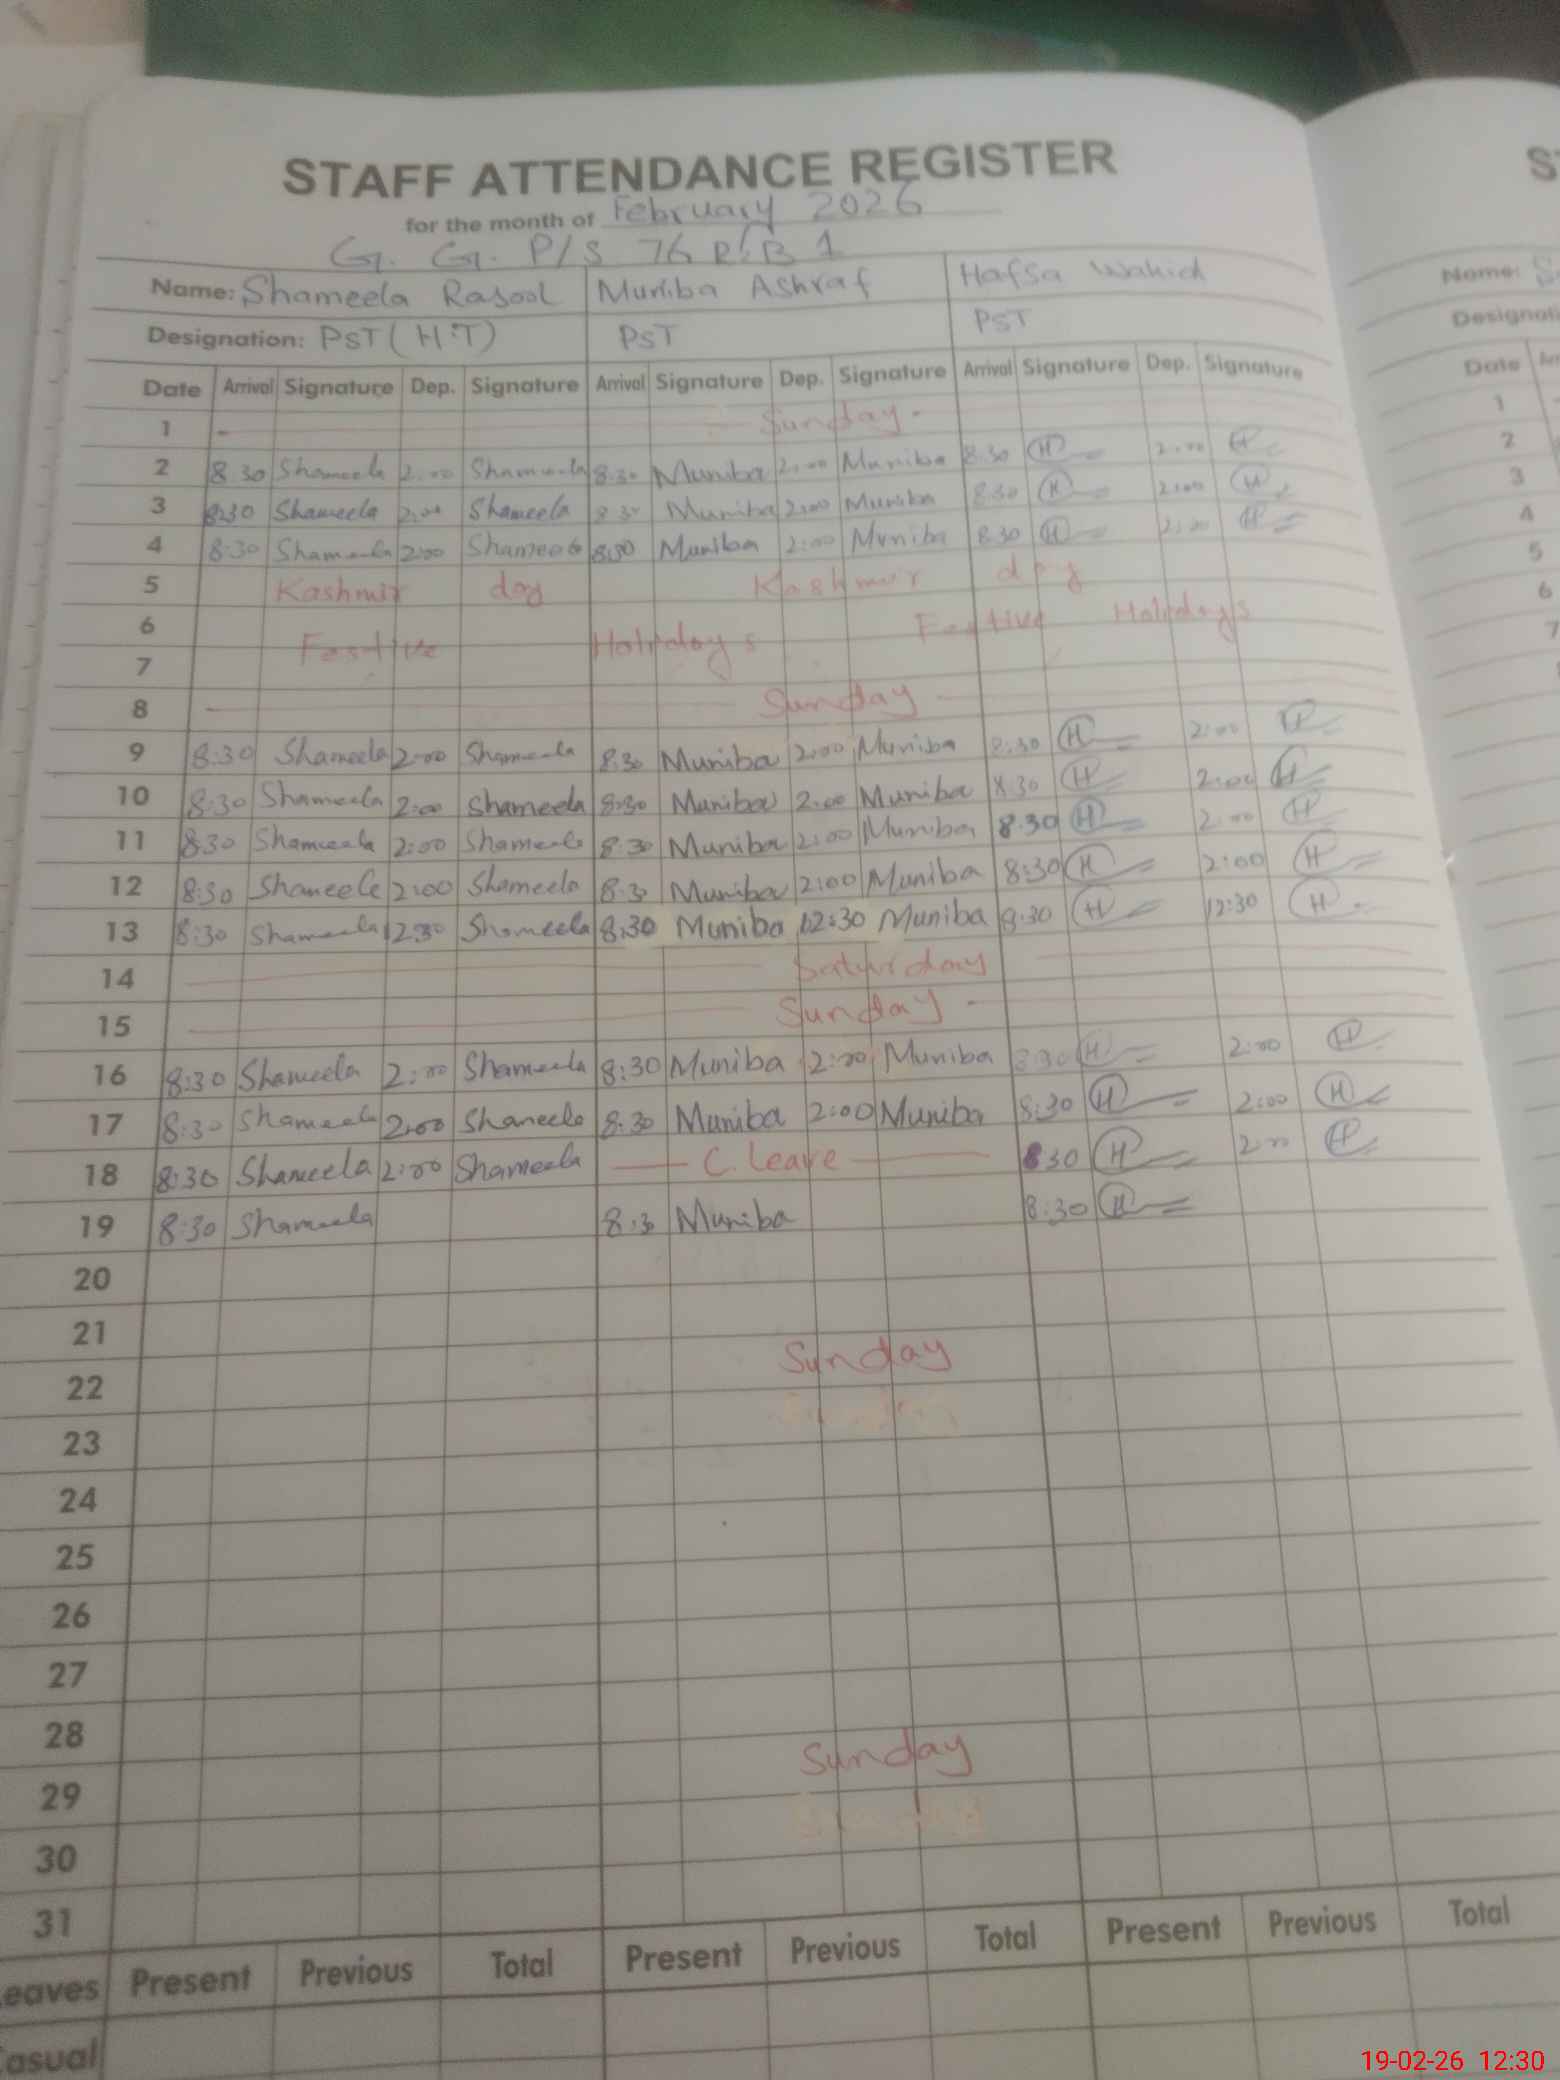 STAFF ATTENDANCE REGISTER
for the month of February 2026
G. G. P/S 76 R.B 1
Name: Shameela Rasool Muniba Ashraf Hafsa Wahid
Designation: PST (H.T) PST PST
Date Arrival Signature Dep. Signature Arrival Signature Dep. Signature Arrival Signature Dep. Signature
1 Sunday
2 8:30 Shameela 2:00 Shameela 8:30 Muniba 2:00 Muniba 8:30 H 2:00 H
3 8:30 Shameela 2:00 Shameela 8:30 Muniba 2:00 Muniba 8:30 H 2:00 H
4 8:30 Shameela 2:00 Shameela 8:30 Muniba 2:00 Muniba 8:30 H 2:00 H
5 Kashmir day Kashmir day
6 Festive Holidays Festive Holidays
7
8 Sunday
9 8:30 Shameela 2:00 Shameela 8:30 Muniba 2:00 Muniba 8:30 H 2:00 H
10 8:30 Shameela 2:00 Shameela 8:30 Muniba 2:00 Muniba 8:30 H 2:00 H
11 8:30 Shameela 2:00 Shameela 8:30 Muniba 2:00 Muniba 8:30 H 2:00 H
12 8:30 Shameela 2:00 Shameela 8:30 Muniba 2:00 Muniba 8:30 H 2:00 H
13 8:30 Shameela 12:30 Shameela 8:30 Muniba 12:30 Muniba 8:30 H 12:30 H
14 Saturday
15 Sunday
16 8:30 Shameela 2:00 Shameela 8:30 Muniba 2:00 Muniba 8:30 H 2:00 H
17 8:30 Shameela 2:00 Shameela 8:30 Muniba 2:00 Muniba 8:30 H 2:00 H
18 8:30 Shameela 2:00 Shameela C. Leave 8:30 H 2:00 H
19 8:30 Shameela 8:30 Muniba 8:30 H
20
21
22 Sunday
23
24
25
26
27
28
29 Sunday
30
31
Leaves Present Previous Total Present Previous Total Present Previous Total
Casual
Name:
Date
1
2
3
4
5
6
7
19-02-26 12:30